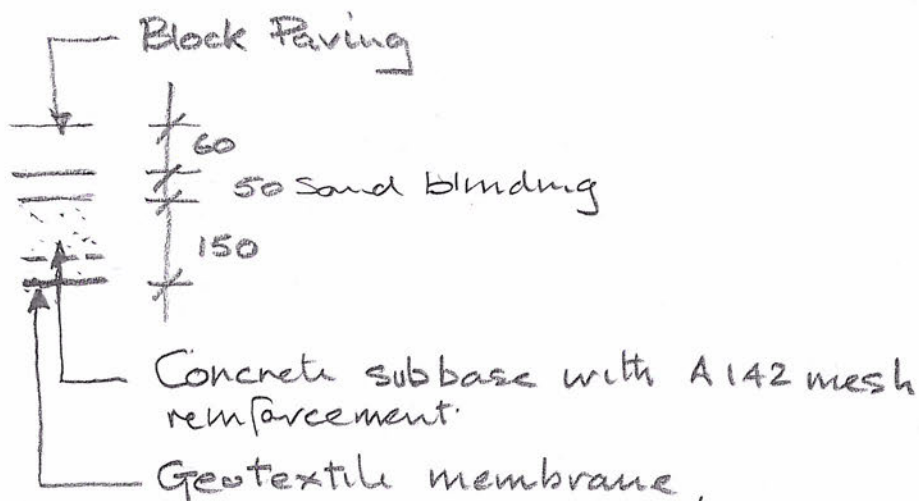 Block Paving
60
50 Sand blinding
150
Concrete subbase with A142 mesh
reinforcement.
Geotextile membrane.